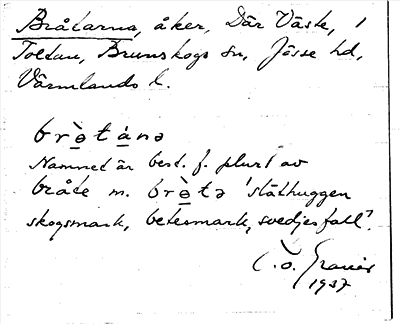 Bråtarna, åker, Där Väste, 1
Toltan, Brunskogs sn, Jösse hd,
Värmlands l.
brè̱tá̱nə
Namnet är best. f. plur. av
bråte m. brè̱tə 'släthuggen
skogsmark, betesmark, svedjefall'.
1937